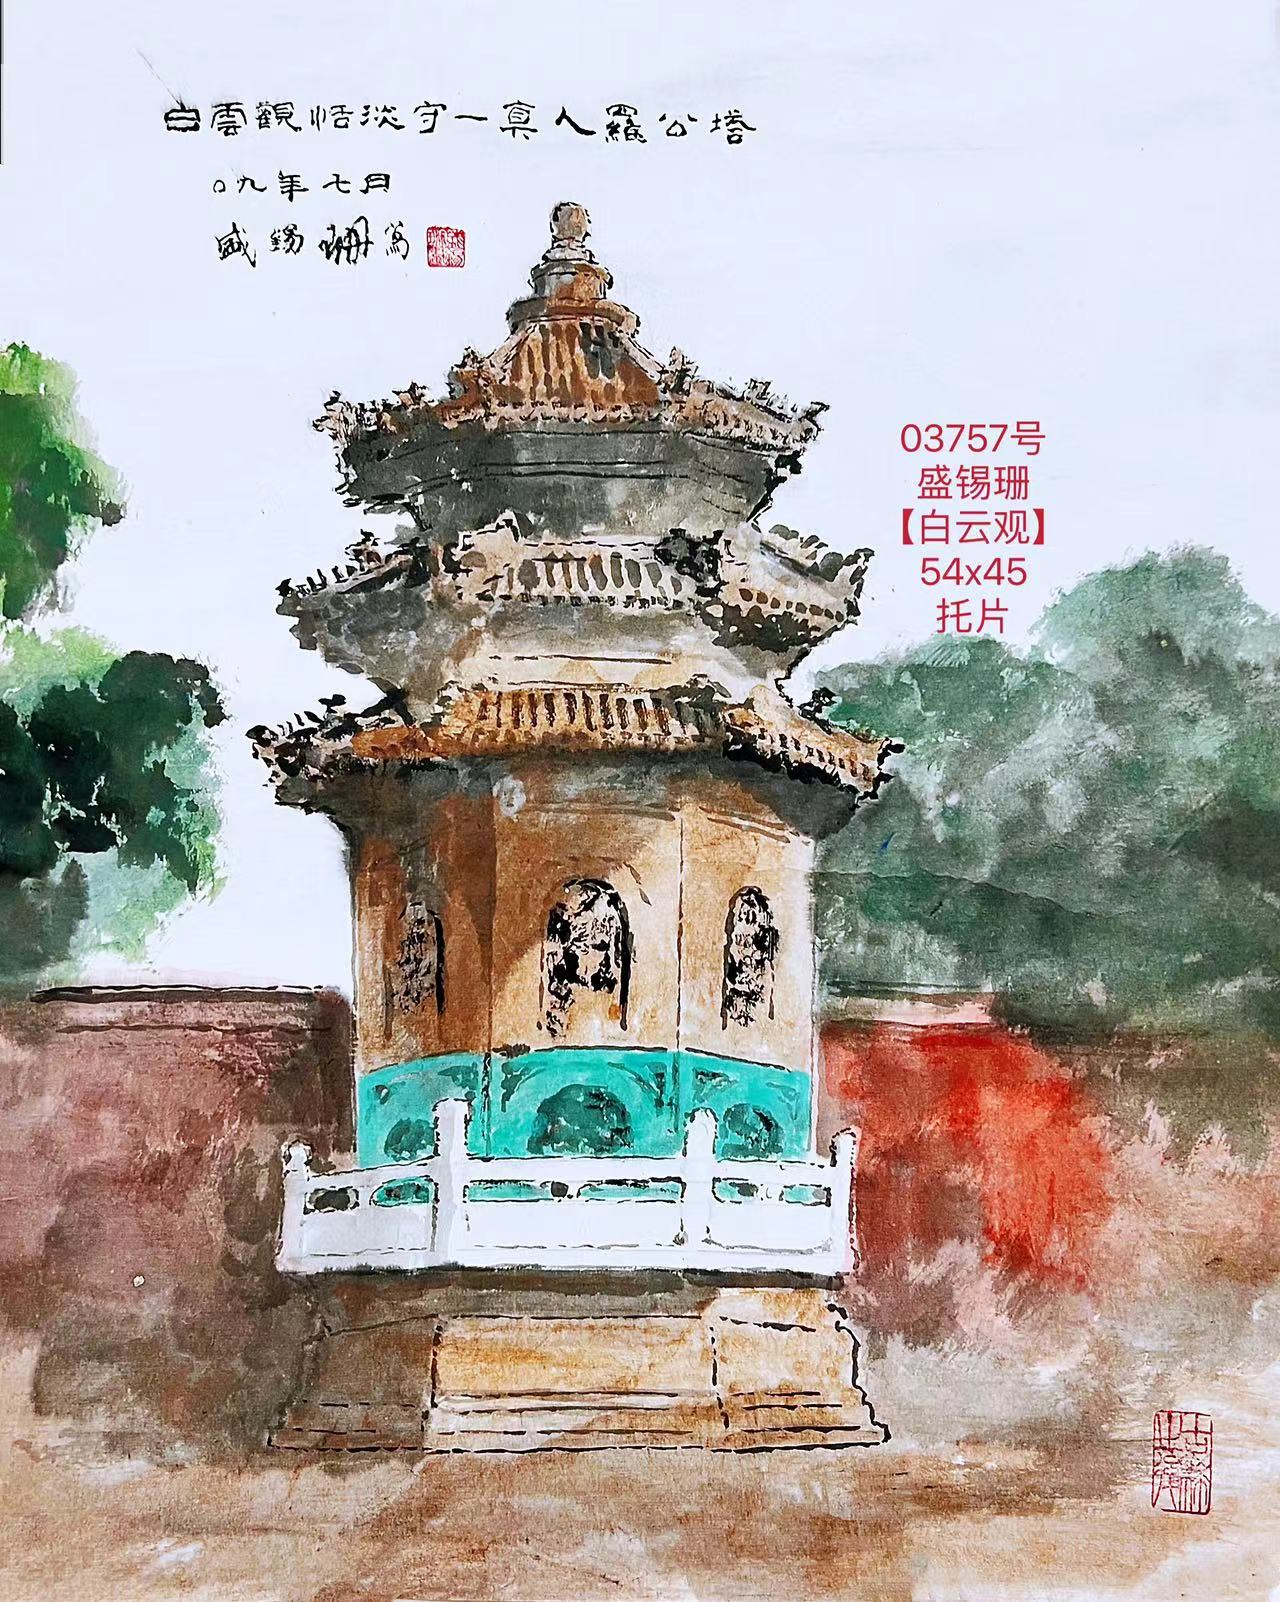 白雲觀恬淡守一真人羅公塔
〇九年七月
盛錫珊寫
03757号
盛锡珊
【白云观】
54x45
托片